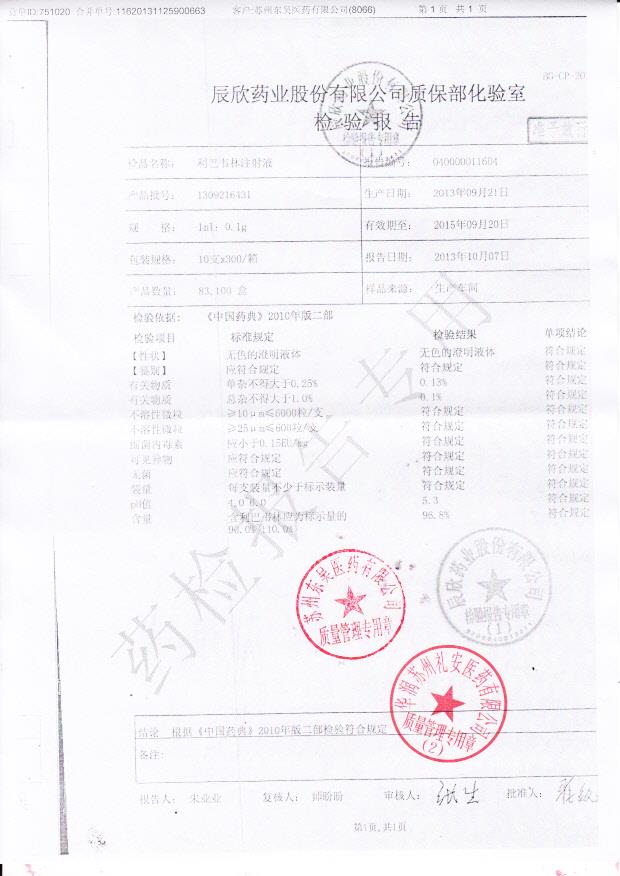 单ID:751020 合并单号:11620131125900663 客户:苏州东吴医药有限公司(8066) 第1页 共1页
BG-CP-20
辰欣药业股份有限公司质保部化验室
检验报告
检品名称: 利巴韦林注射液 报告编号: 040000011604
产品批号: 1309216431 生产日期: 2013年09月21日
规 格: 1ml: 0.1g 有效期至: 2015年09月20日
包装规格: 10支x300/箱 报告日期: 2013年10月07日
产品数量: 83,100 盒 样品来源: 生产车间
检验依据: 《中国药典》2010年版二部
检验项目 标准规定 检验结果 单项结论
【性状】 无色的澄明液体 无色的澄明液体 符合规定
【鉴别】 应符合规定 符合规定 符合规定
有关物质 单杂不得大于0.25% 0.13% 符合规定
有关物质 总杂不得大于1.0% 0.1% 符合规定
不溶性微粒 ≥10μm≤6000粒/支 符合规定 符合规定
不溶性微粒 ≥25μm≤600粒/支 符合规定 符合规定
细菌内毒素 应小于0.15EU/mg 符合规定 符合规定
可见异物 应符合规定 符合规定 符合规定
无菌 应符合规定 符合规定 符合规定
装量 每支装量不少于标示装量 符合规定 符合规定
pH值 4.0 6.0 5.3 符合规定
含量 含利巴韦林应为标示量的 96.8% 符合规定
90.0%/110.0%
药检报告专用
苏州东吴医药有限公司
质量管理专用章
辰欣药业股份有限公司
检验报告专用章
(1)
华润苏州礼安医药有限公司
质量管理专用章
(2)
结论 根据《中国药典》2010年版二部检验符合规定
备注:
报告人: 朱业业 复核人: 师盼盼 审核人: 批准人:
第1页,共1页